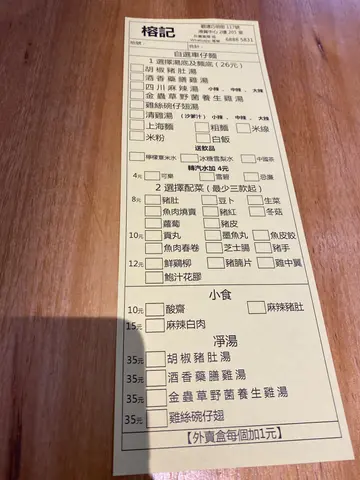 榕記
觀塘巧明街 117號
港貿中心 2樓 201 室
外賣電話 &
Whatsapp 電話 6886 5831
枱號: 合計:
自選車仔麵
1 選擇湯底及麵底 (26元)
胡椒豬肚湯
酒香藥膳雞湯
四川麻辣湯 小辣 、 中辣 、 大辣
金蟲草野菌養生雞湯
雞絲碗仔翅湯
清雞湯 (沙爹汁) 小辣 、 中辣 、 大辣
上海麵 粗麵 米線
米粉 白飯
送飲品
檸檬薏米水 冰糖雪梨水 中國茶
轉汽水加 4元
4元 可樂 雪碧 忌廉
2 選擇配菜 (最少三款起)
8元 豬肚 豆卜 生菜
魚肉燒賣 豬紅 冬菇
蘿蔔 豬皮
10元 貢丸 墨魚丸 魚皮餃
魚肉春卷 芝士腸 豬手
12元 鮮雞柳 豬腩片 雞中翼
鮑汁花膠
小食
10元 酸齋 麻辣豬肚
15元 麻辣白肉
凈湯
35元 胡椒豬肚湯
35元 酒香藥膳雞湯
35元 金蟲草野菌養生雞湯
35元 雞絲碗仔翅
【外賣盒每個加1元】